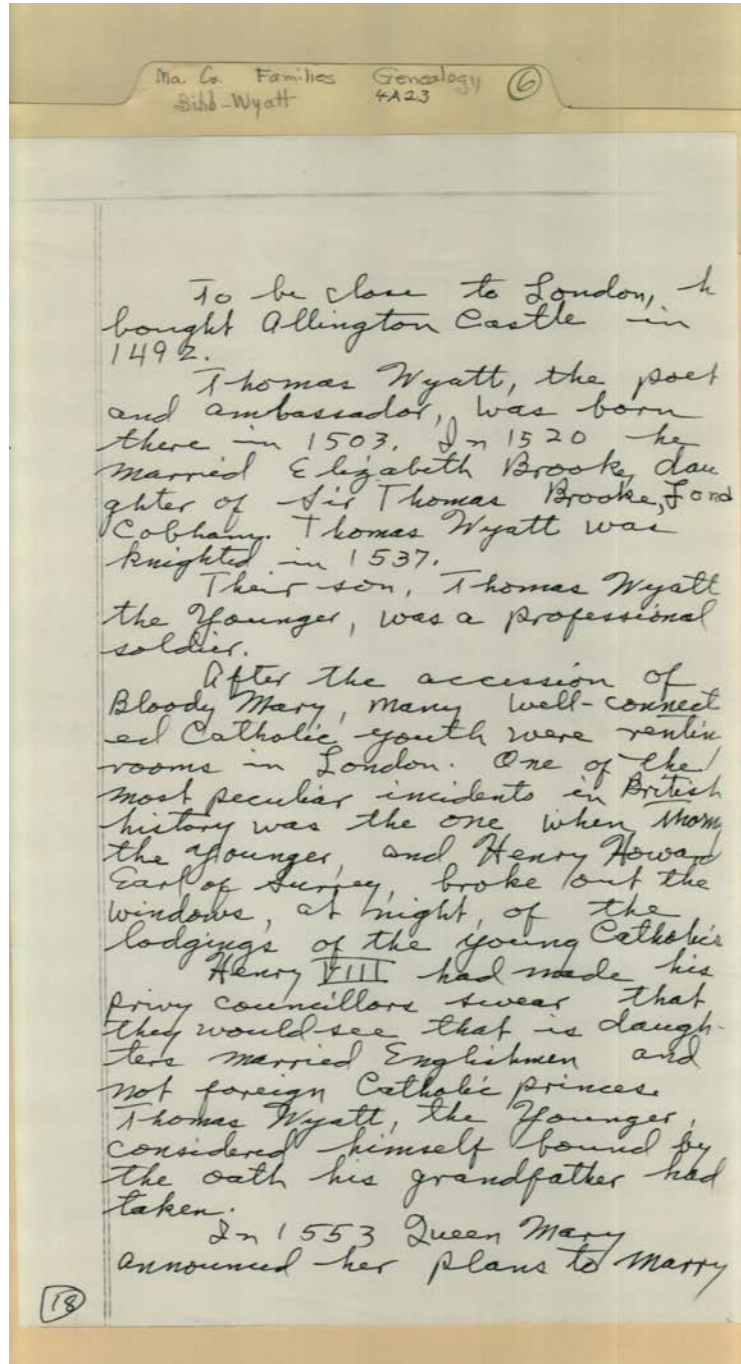 Ma. Co. Families Genealogy 6
Bibb-Wyatt 4A23
To be close to London, h
bought Allington Castle in
1492.
Thomas Wyatt, the poet
and ambassador, was born
there in 1503. In 1520 he
married Elizabeth Brooke, dau
ghter of Sir Thomas Brooke, Lord
Cobham. Thomas Wyatt was
knighted in 1537.
Their son, Thomas Wyatt
the Younger, was a professional
soldier.
After the accession of
Bloody Mary, many well-connect
ed Catholic youth were rentin
rooms in London. One of the
most peculiar incidents in British
history was the one when Thom
the younger, and Henry Howard
Earl of Surrey, broke out the
windows, at night, of the
lodgings of the young Catholics
Henry VIII had made his
privy councillors swear that
they would see that is daugh-
ters married Englishmen and
not foreign Catholic princes.
Thomas Wyatt, the Younger,
considered himself bound by
the oath his grandfather had
taken.
In 1553 Queen Mary
announced her plans to marry
18